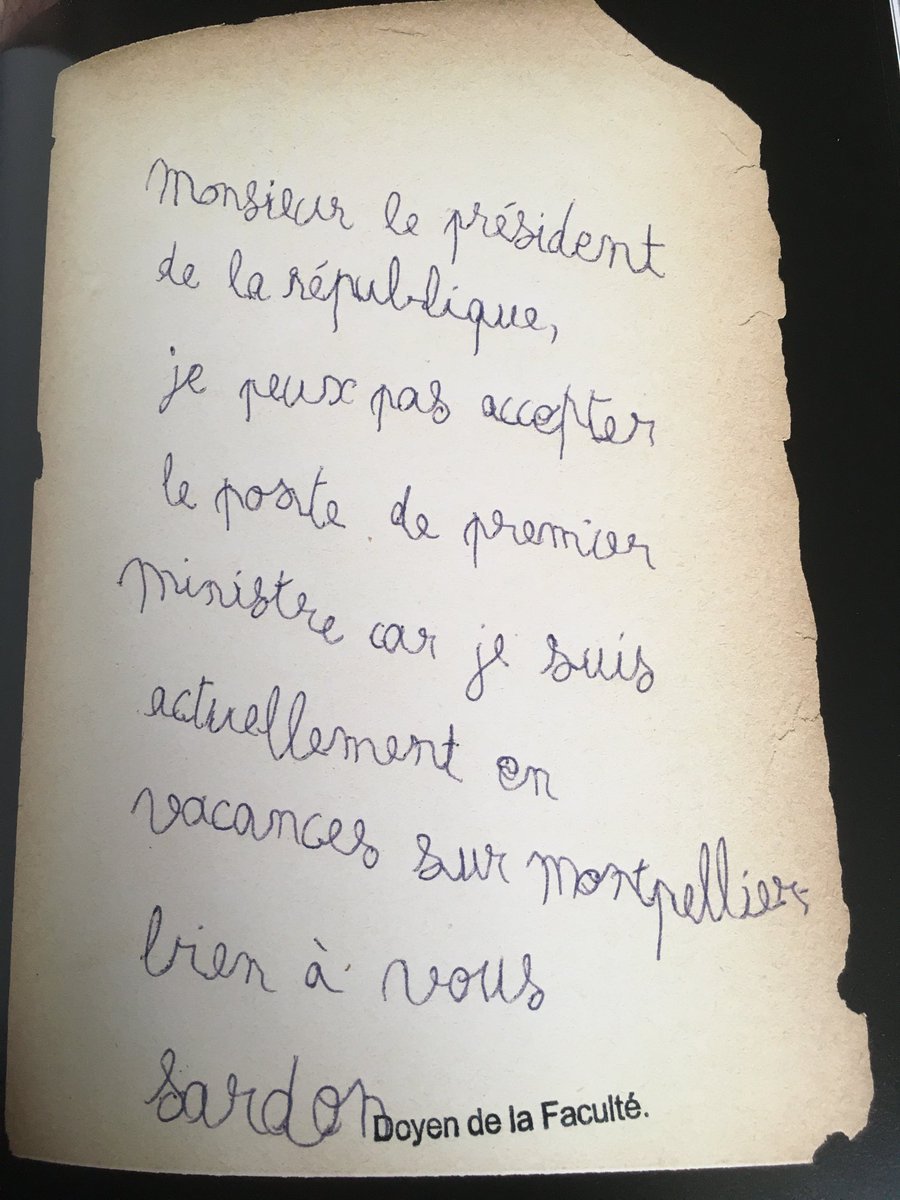 Monsieur le président
de la république,
je peux pas accepter
le poste de premier
ministre car je suis
actuellement en
vacances sur Montpellier,
bien à vous
sardon
Doyen de la Faculté.